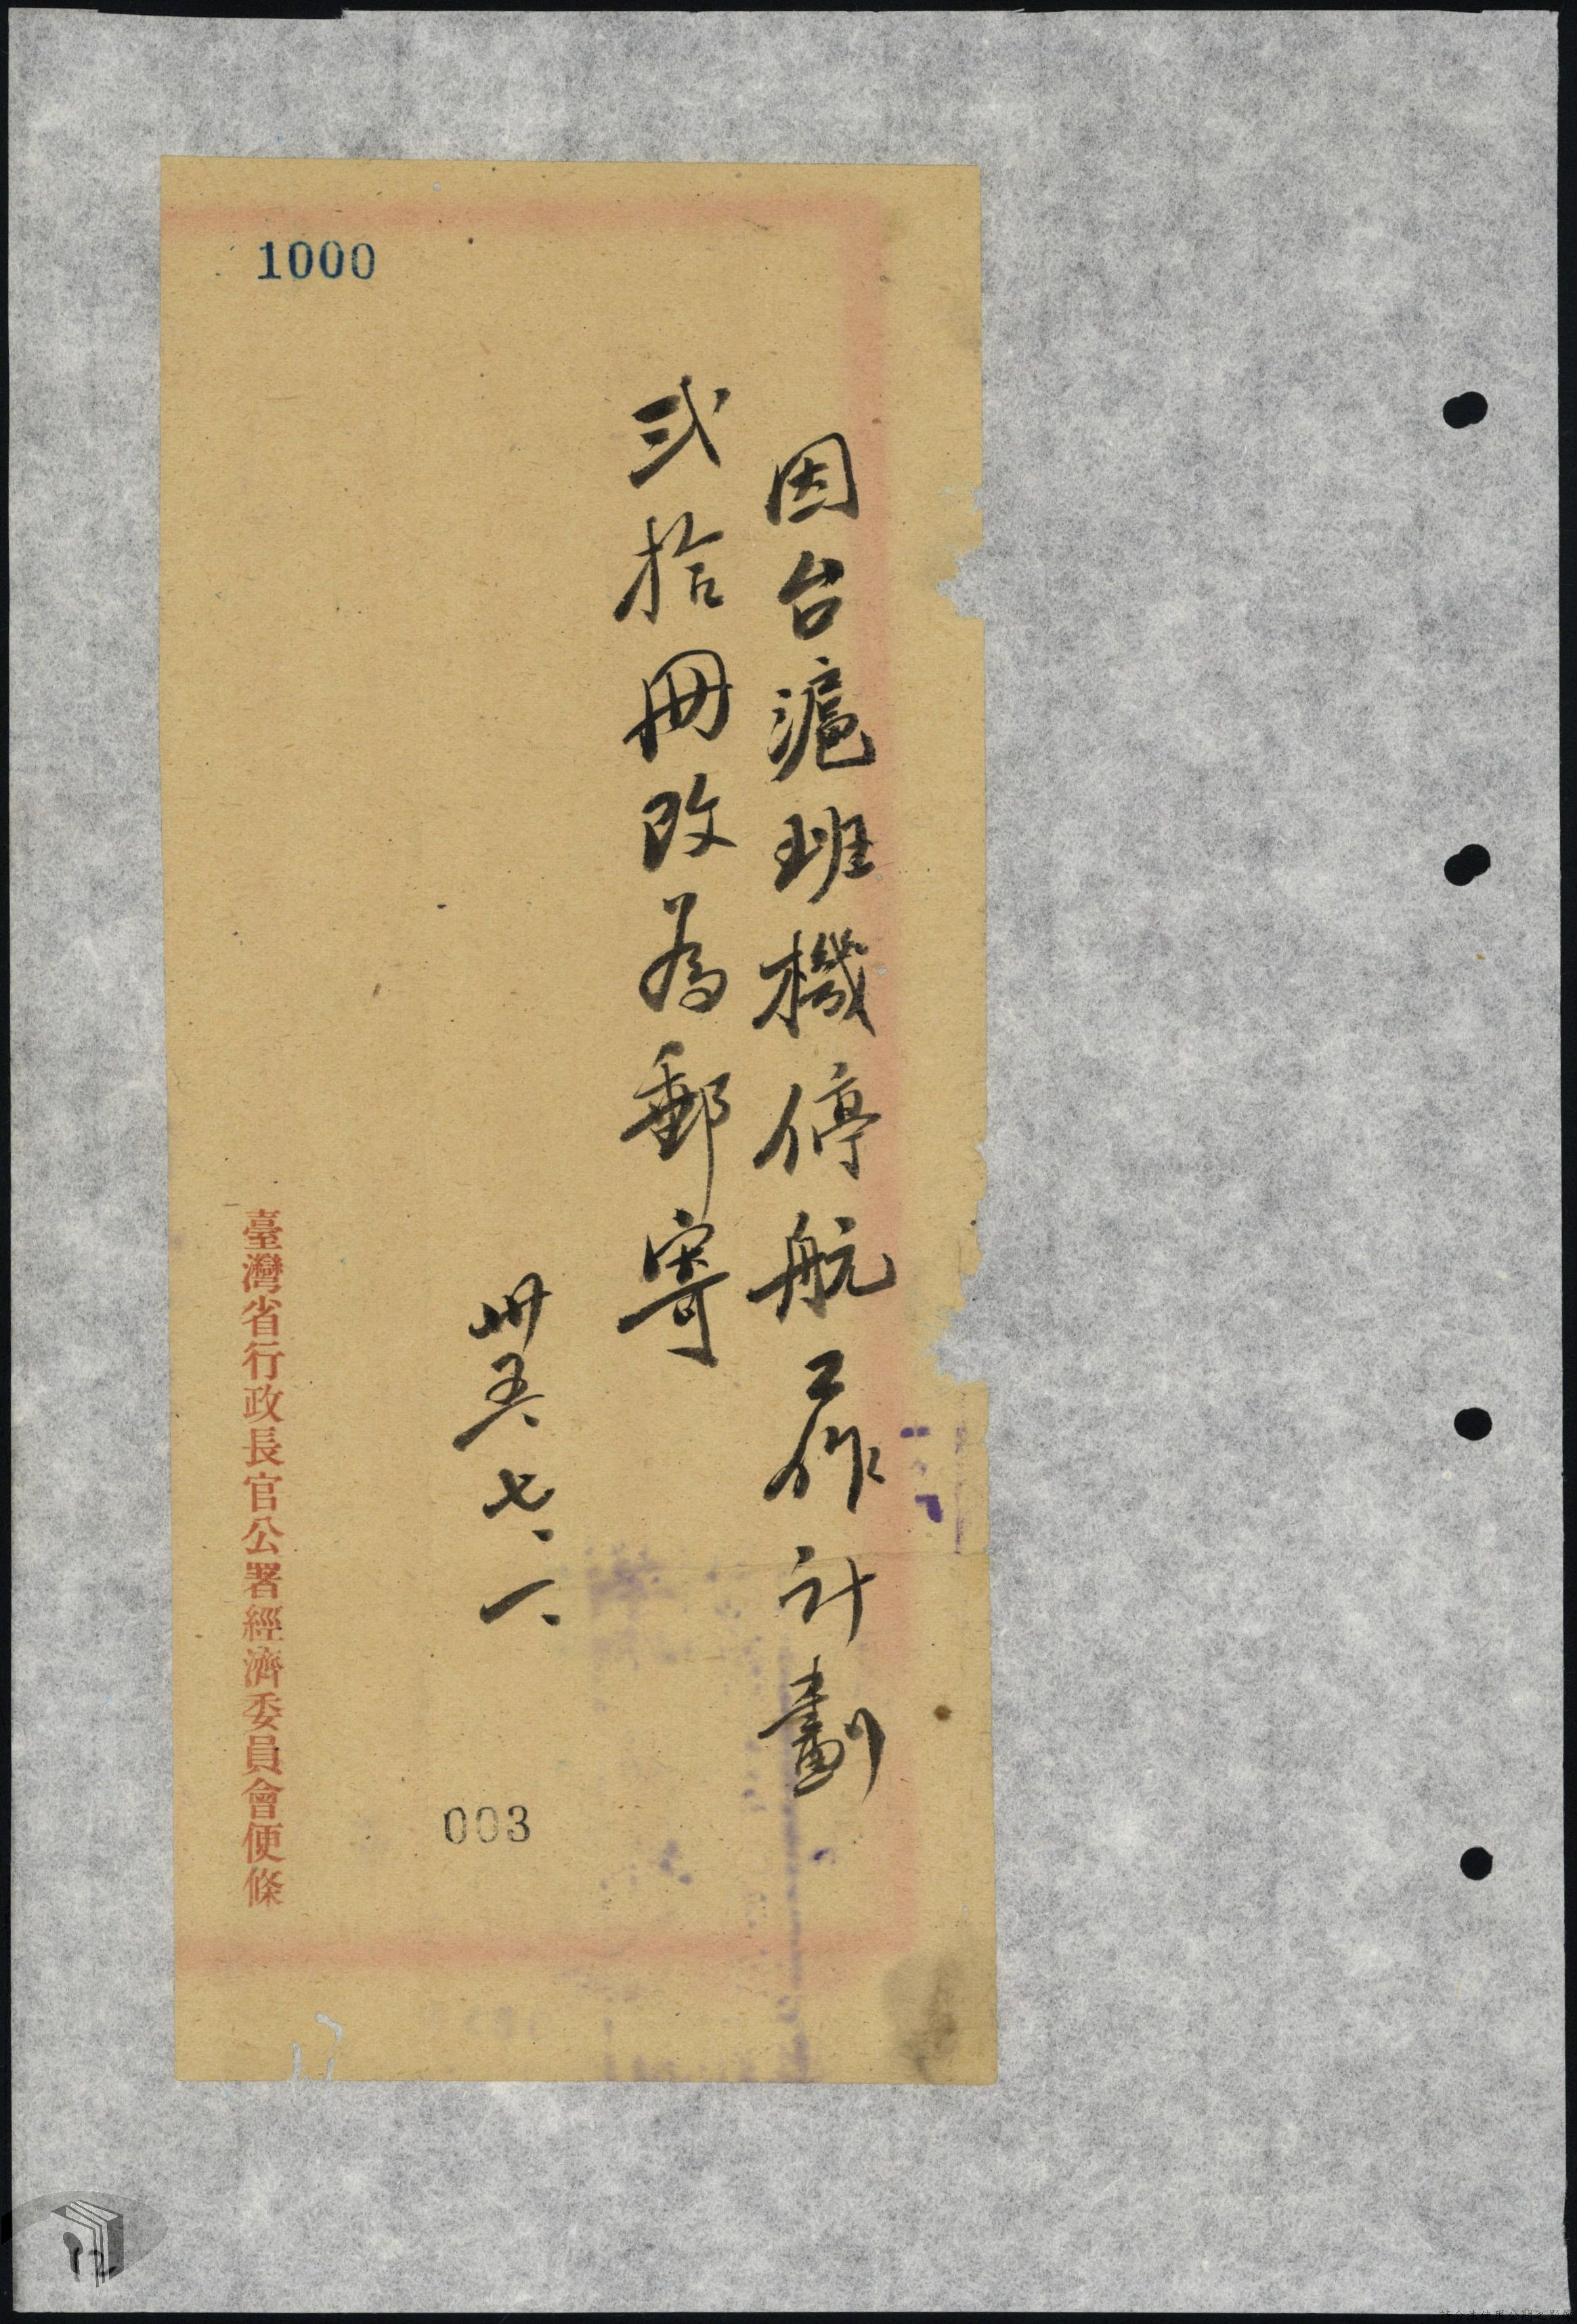 因台滬班機停航工作計劃
弍拾冊改為郵寄
卅五、七、一、
臺灣省行政長官公署經濟委員會便條
1000
003
12